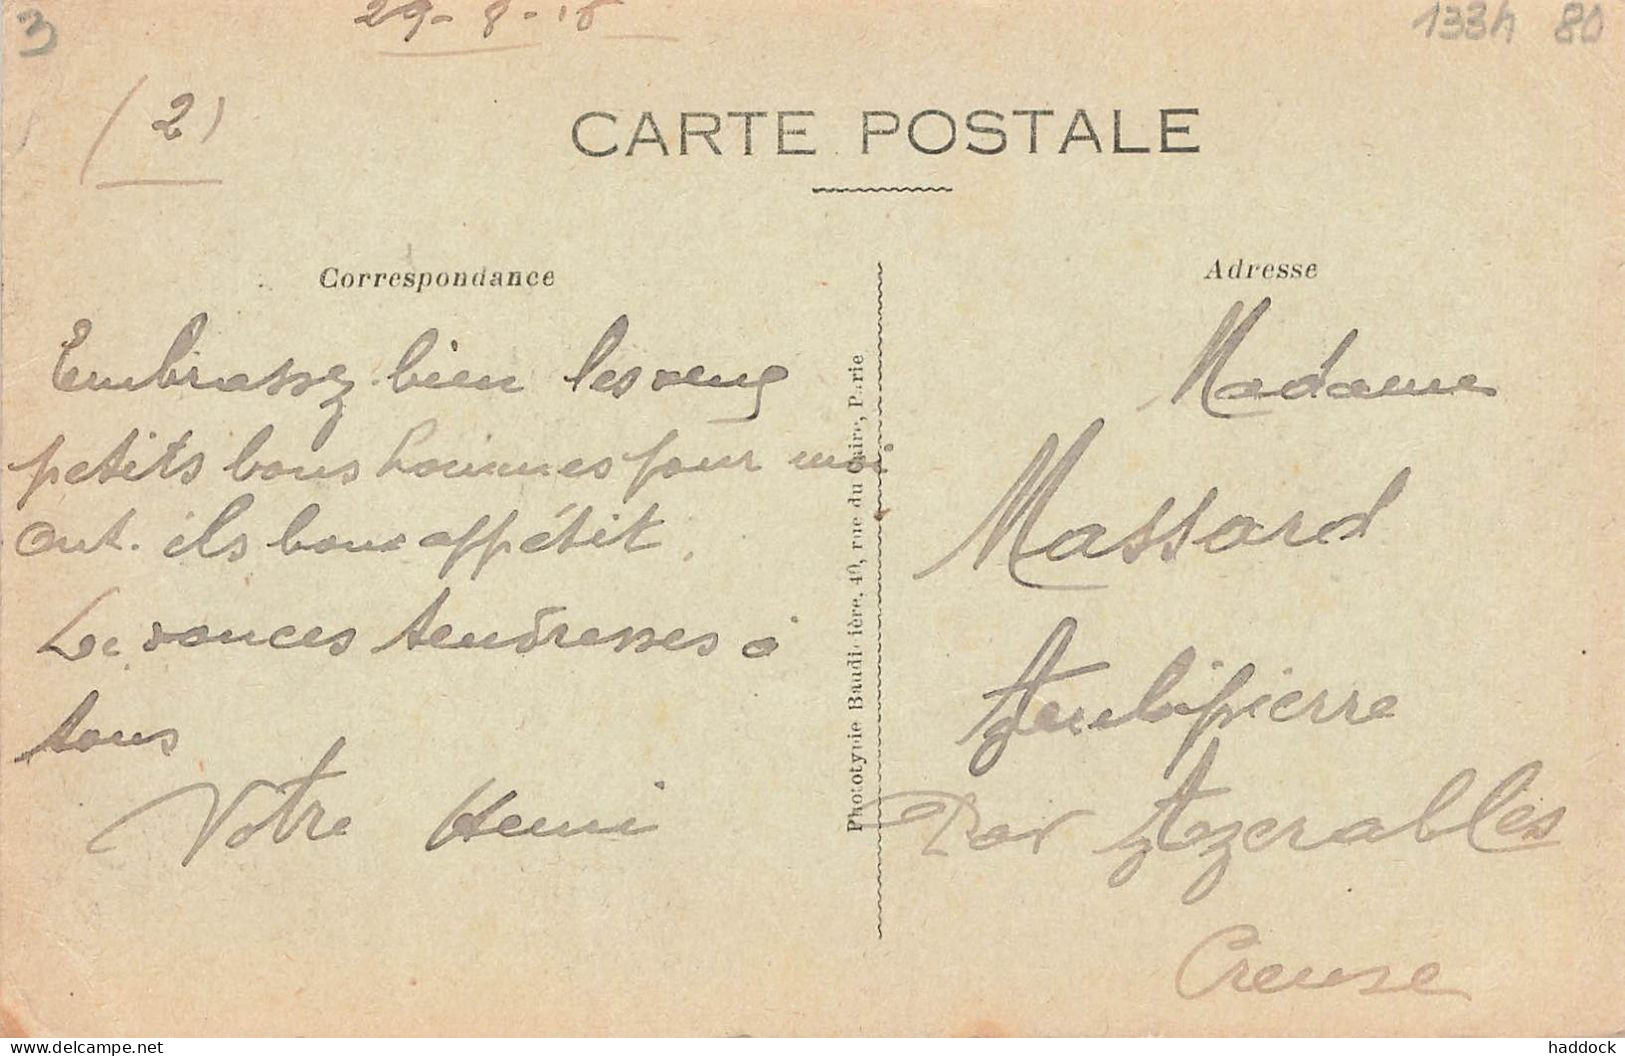 3
29-8-16
133h 80
(2)
CARTE POSTALE
Correspondance
Adresse
Embrassez bien les deux
petits bons hommes pour moi
Ont-ils bon appétit.
douces tendresses à
tous
Votre Henri
Phototypie Baudinière, 40, rue du Caire, Paris
Madame
Massard
Aubepierre
Par Azerables
Creuse
delcampe.net
haddock